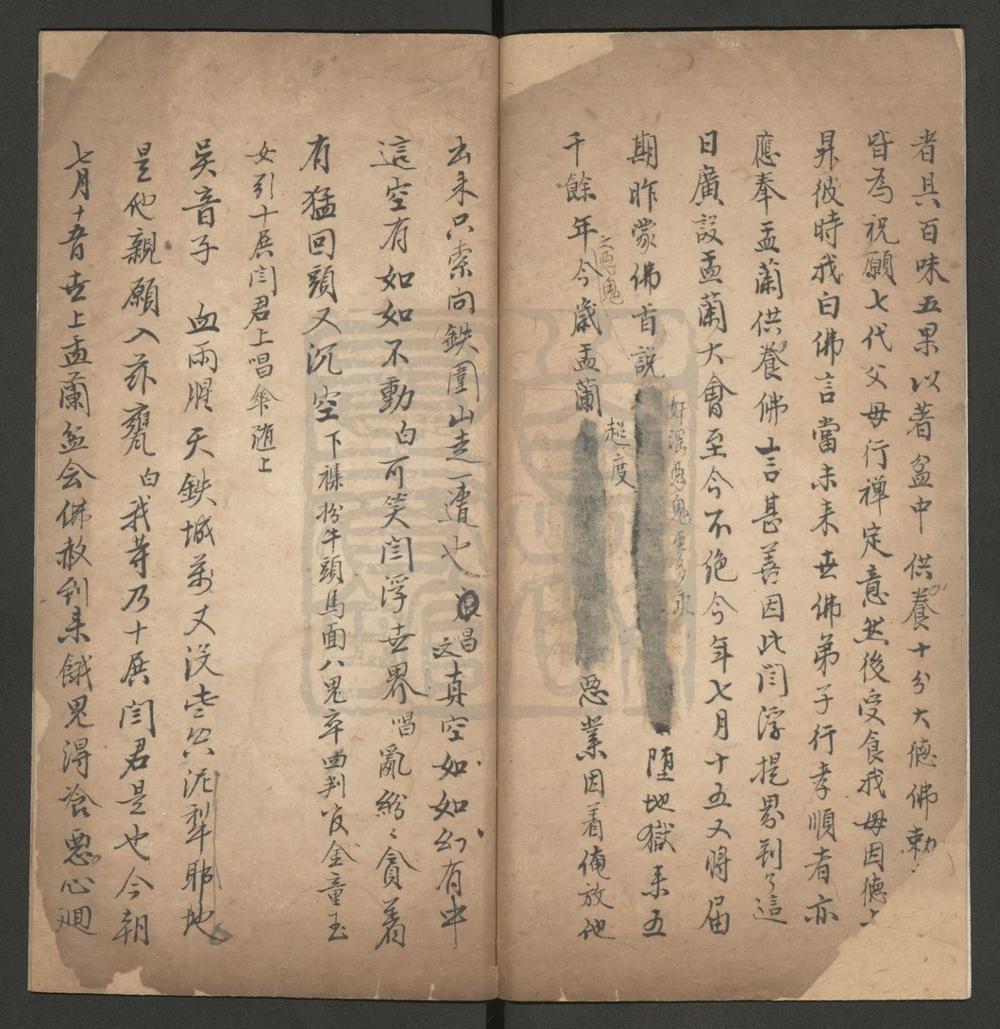 者具百味五果以著盆中供養十分大德佛勅
皆為祝願七代父母行禅定意然後受食我母因德上
昇彼時我白佛言當未来世佛弟子行孝順者亦
應奉盂蘭供養佛言甚善因此閆浮提界到了這
日廣設盂蘭大會至今不絶今年七月十五又將届
期昨蒙佛旨説
墮地獄未五
千餘年今歲盂蘭
超度
惡業因着俺放他
去来只索向鉄圍山走一遭也
唱
這真空如如幻有中
這空有如如不動白可笑閆浮世界唱亂紛〻貪着
有猛回頭又沉空下襍扮牛頭馬面八鬼卒四判官金童玉
女引十展閆君上唱傘随上
吳音子 血雨腥天鉄城萬丈没
泥犁耶地
是他親願入茲甕白我等乃十展閆君是也今朝
七月十五日世上盂蘭盆会佛赦到来餓鬼得
惡心廻